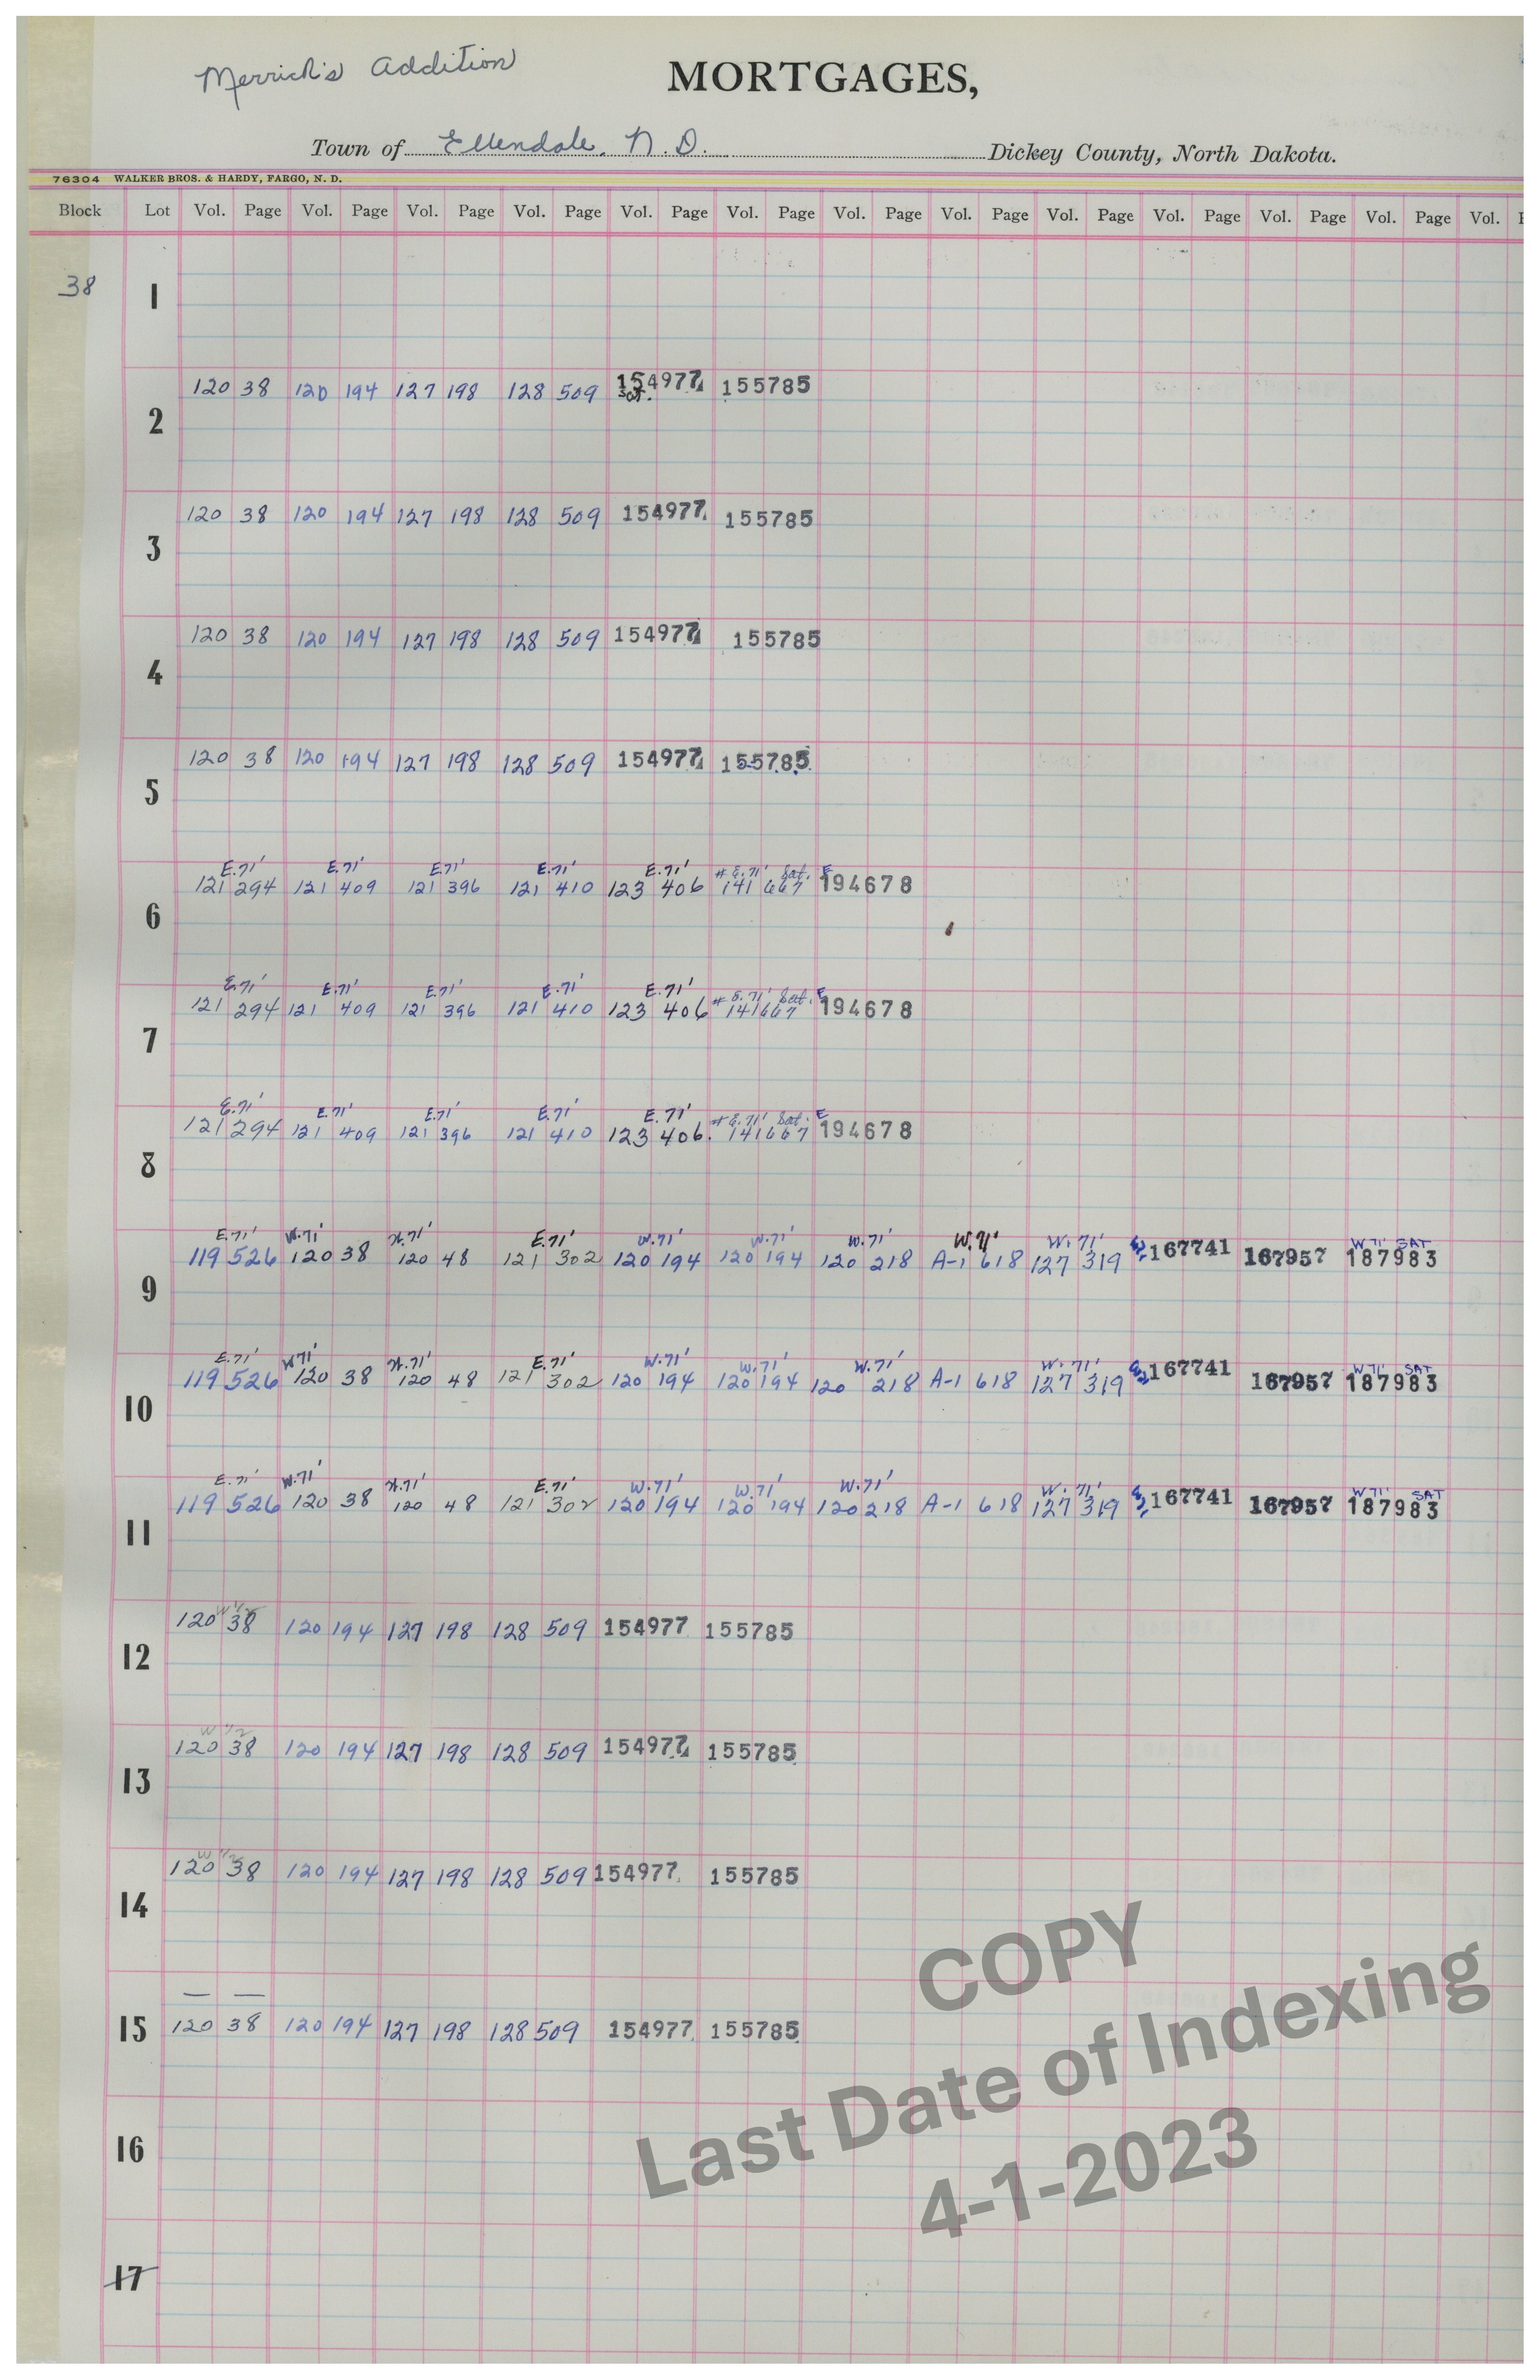 Merrick's Addition
MORTGAGES,
Town of Ellendale, N.D. Dickey County, North Dakota.
76304 WALKER BROS. & HARDY, FARGO, N. D.
Block Lot Vol. Page Vol. Page Vol. Page Vol. Page Vol. Page Vol. Page Vol. Page Vol. Page Vol. Page Vol. Page Vol. Page Vol. Page Vol.
38 1
120 38 120 194 127 198 128 509 154977 155785
Sat.
2
120 38 120 194 127 198 128 509 154977 155785
3
120 38 120 194 127 198 128 509 154977 155785
4
120 38 120 194 127 198 128 509 154977 155785
5
E.71' E.71' E.71' E.71' E.71' # E.71' Sat. E
121 294 121 409 121 396 121 410 123 406 141667 194678
6
E.71' E.71' E.71' E.71' E.71' # E.71' Sat. E
121 294 121 409 121 396 121 410 123 406 141667 194678
7
E.71' E.71' E.71' E.71' E.71' # E.71' Sat. E
121 294 121 409 121 396 121 410 123 406 141667 194678
8
E.71' W.71' W.71' E.71' W.71' W.71' W.71' W.71' W.71' W 71' SAT
119 526 120 38 120 48 121 302 120 194 120 194 120 218 A-1 618 127 319 167741 167957 187983
9
E.71' W71' W.71' E.71' W.71' W.71' W.71' W.71' W 71' SAT
119 526 120 38 120 48 121 302 120 194 120 194 120 218 A-1 618 127 319 167741 167957 187983
10
E.71' W.71' W.71' E.71' W.71' W.71' W.71' W.71' W 71' SAT
119 526 120 38 120 48 121 302 120 194 120 194 120 218 A-1 618 127 319 167741 167957 187983
11
W 1/2
120 38 120 194 127 198 128 509 154977 155785
12
W 1/2
120 38 120 194 127 198 128 509 154977 155785
13
W 1/2
120 38 120 194 127 198 128 509 154977 155785
14
15 120 38 120 194 127 198 128 509 154977 155785
16
17
COPY
Last Date of Indexing
4-1-2023